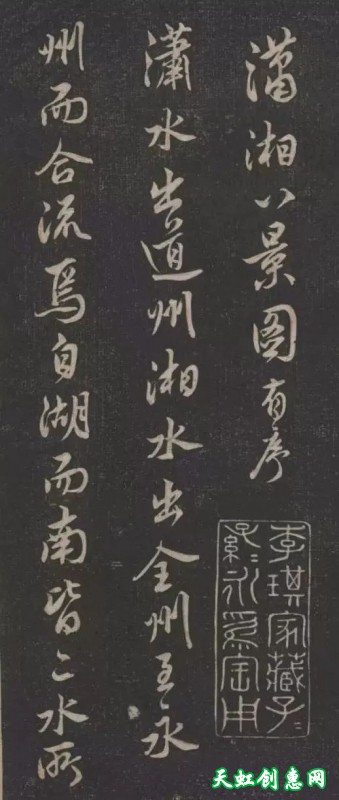 瀟湘八景图有序
瀟水出道州湘水出全州至永
州而合流焉自湖而南皆二水所
李琪家藏子〻
孫〻永爲宝用
天虹创惠网